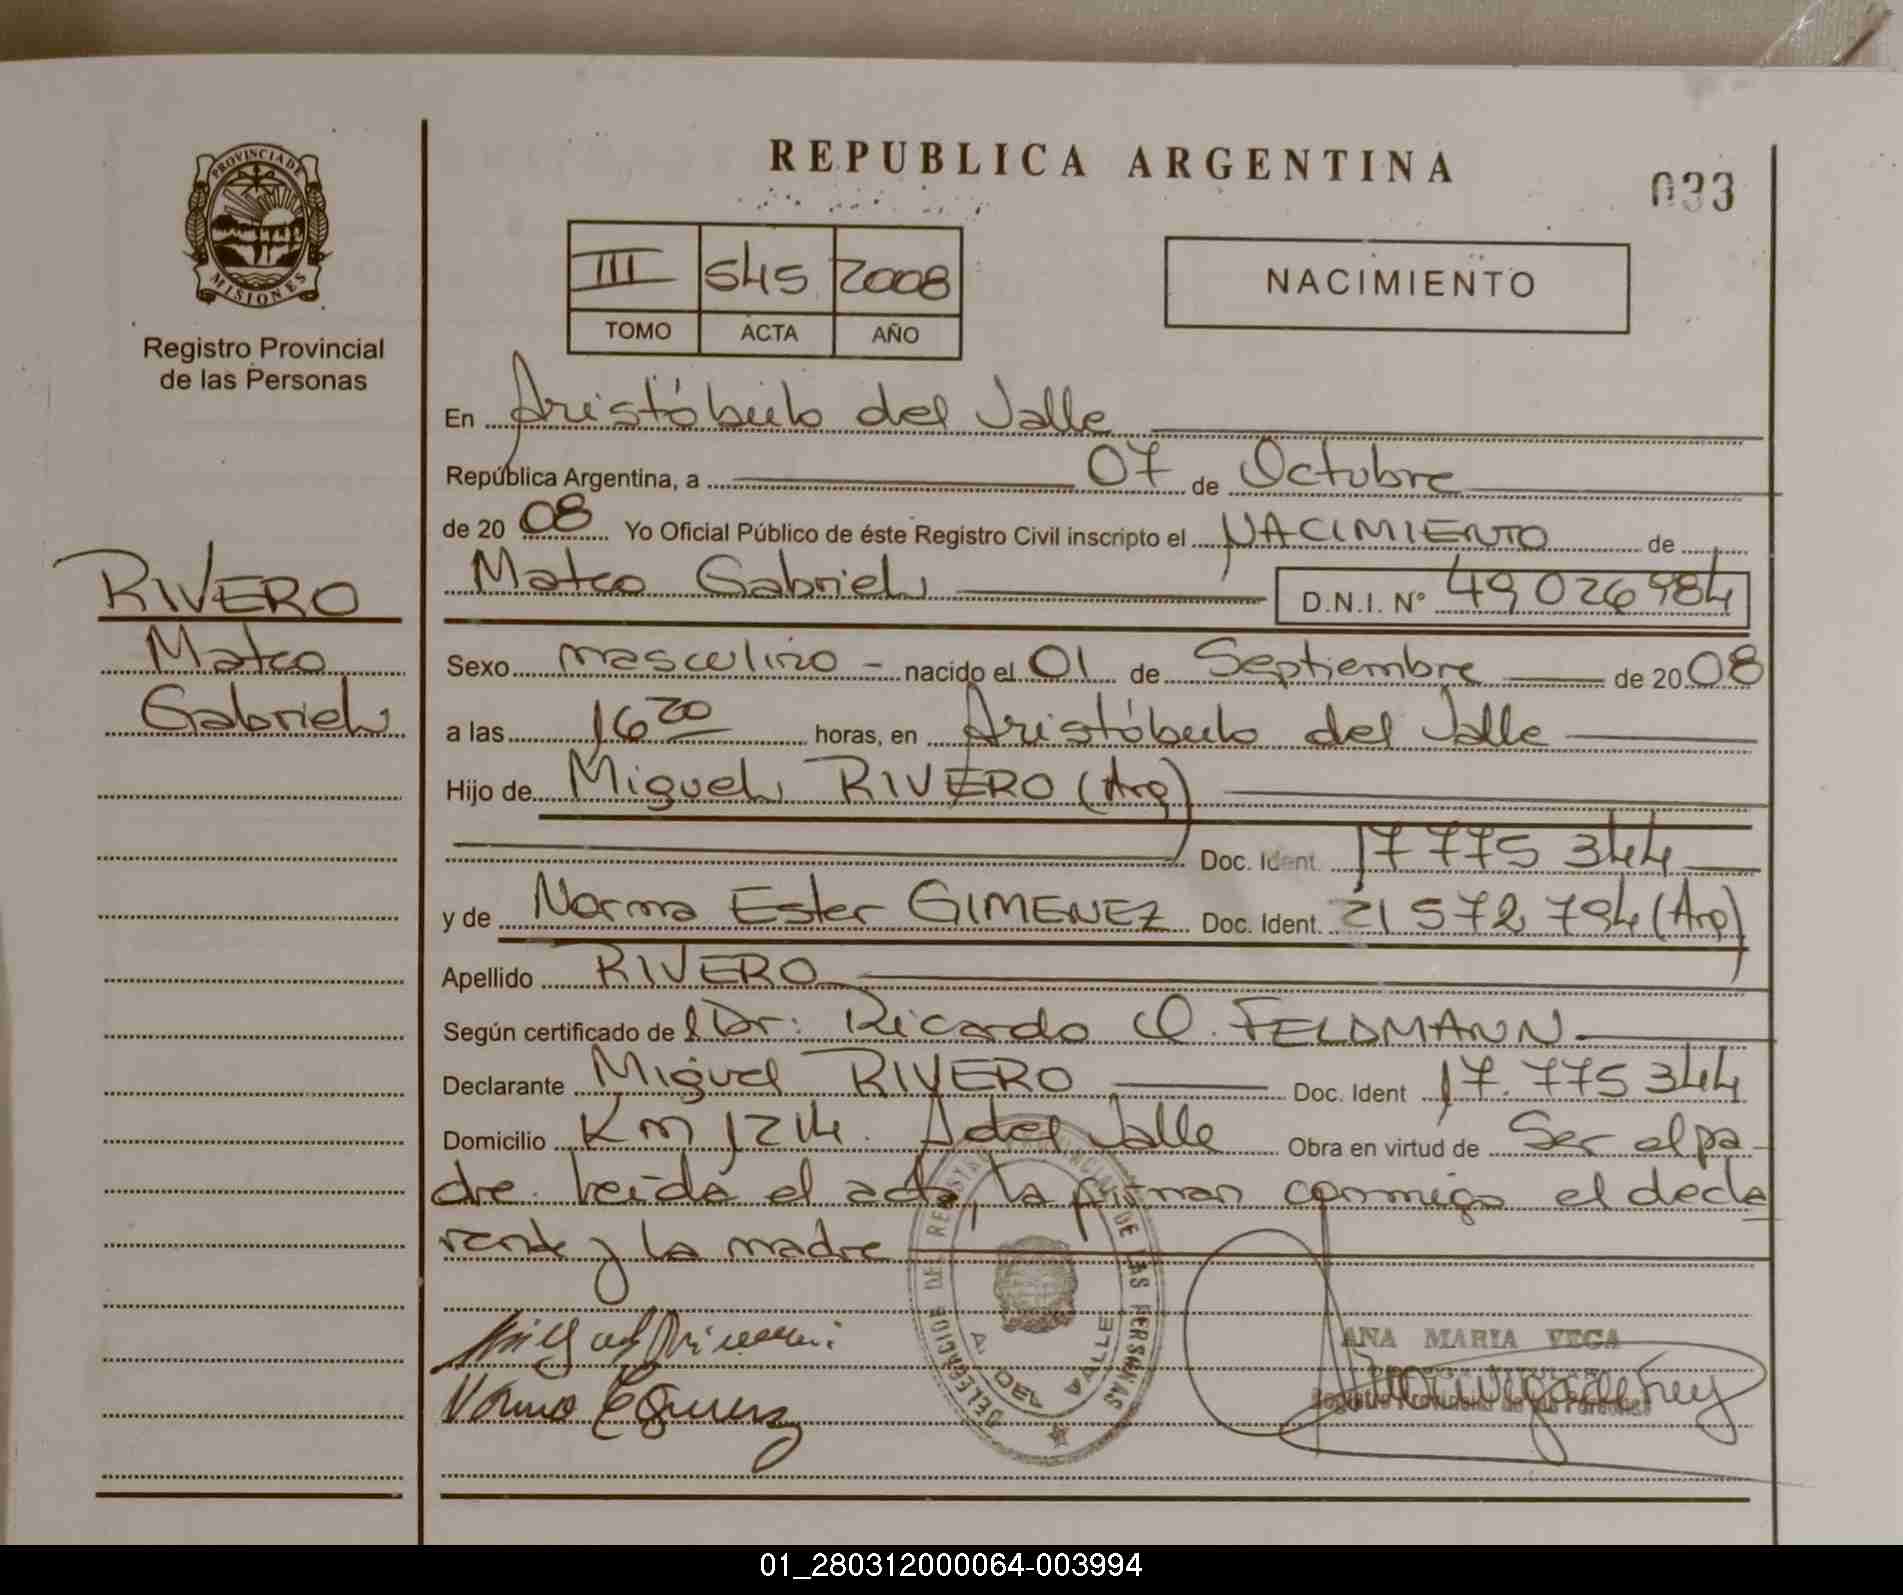 PROVINCIA DE
MISIONES
Registro Provincial
de las Personas
RIVERO
Mateo
Gabriel
REPUBLICA ARGENTINA
033
III 545 2008
TOMO ACTA AÑO
NACIMIENTO
En Aristóbulo del Valle
República Argentina, a 07 de Octubre
de 20 08 Yo Oficial Público de éste Registro Civil inscripto el NACIMIENTO de
Mateo Gabriel D.N.I. N° 49 026 984
Sexo masculino - nacido el 01 de Septiembre de 20 08
a las 16 20 horas, en Aristóbulo del Valle
Hijo de Miguel RIVERO (Arg)
Doc. Ident. 17 775 344
y de Norma Ester GIMENEZ Doc. Ident. 21 572 794 (Arg)
Apellido RIVERO
Según certificado de Dr. Ricardo O. FELDMANN
Declarante Miguel RIVERO Doc. Ident 17.775 344
Domicilio Km 1214. A del Valle Obra en virtud de Ser el pa-
dre. Leída el acta, la firman conmigo el decla
rante y la madre
DELEGACION DEL REGISTRO PROVINCIAL DE LAS PERSONAS
A. DEL VALLE
ANA MARIA VEGA
Registro Provincial de las Personas
01_280312000064-003994